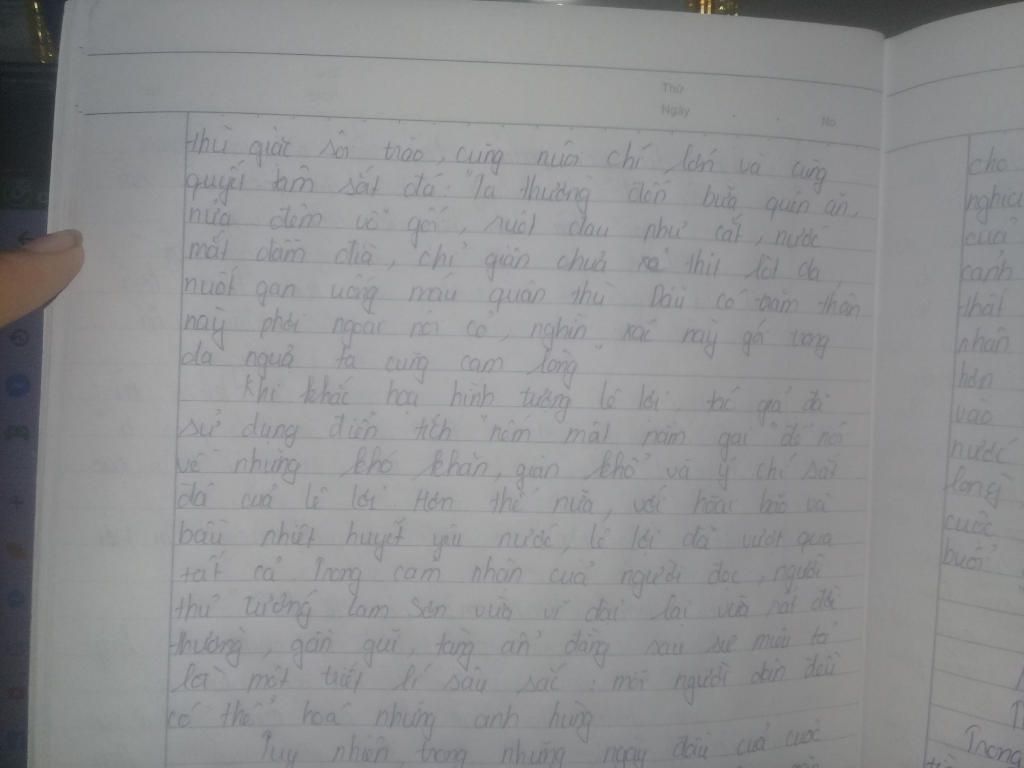 Thứ
Ngày
No
thù giặc sôi trào, cùng nuôi chí lớn và cùng
quyết tâm sắt đá: "Ta thường đến bữa quên ăn,
nửa đêm vỗ gối, ruột đau như cắt, nước
mắt đầm đìa, chỉ giận chưa xả thịt lột da
nuốt gan uống máu quân thù Dẫu có trăm thân
này phơi ngoài nội cỏ, nghìn xác này gói trong
da ngựa ta cũng cam lòng"
Khi khắc hoạ hình tượng Lê Lợi, tác giả đã
sử dụng điển tích "nếm mật nằm gai" để nói
về những khó khăn, gian khổ và ý chí sắt
đá của Lê Lợi Hơn thế nữa, với hoài bão và
bầu nhiệt huyết yêu nước, Lê Lợi đã vượt qua
tất cả Trong cảm nhận của người đọc, người
thủ tướng Lam Sơn vừa vĩ đại lại vừa rất đời
thường, gần gũi, tàng ẩn đằng sau sự miêu tả
là một triết lí sâu sắc: mỗi người dân đều
có thể hoá những anh hùng
Tuy nhiên, trong những ngày đầu của cuộc
cho
của
cảnh
thất
nhân
hơn
vào
nước
lòng
cuộc
buổi
Trong